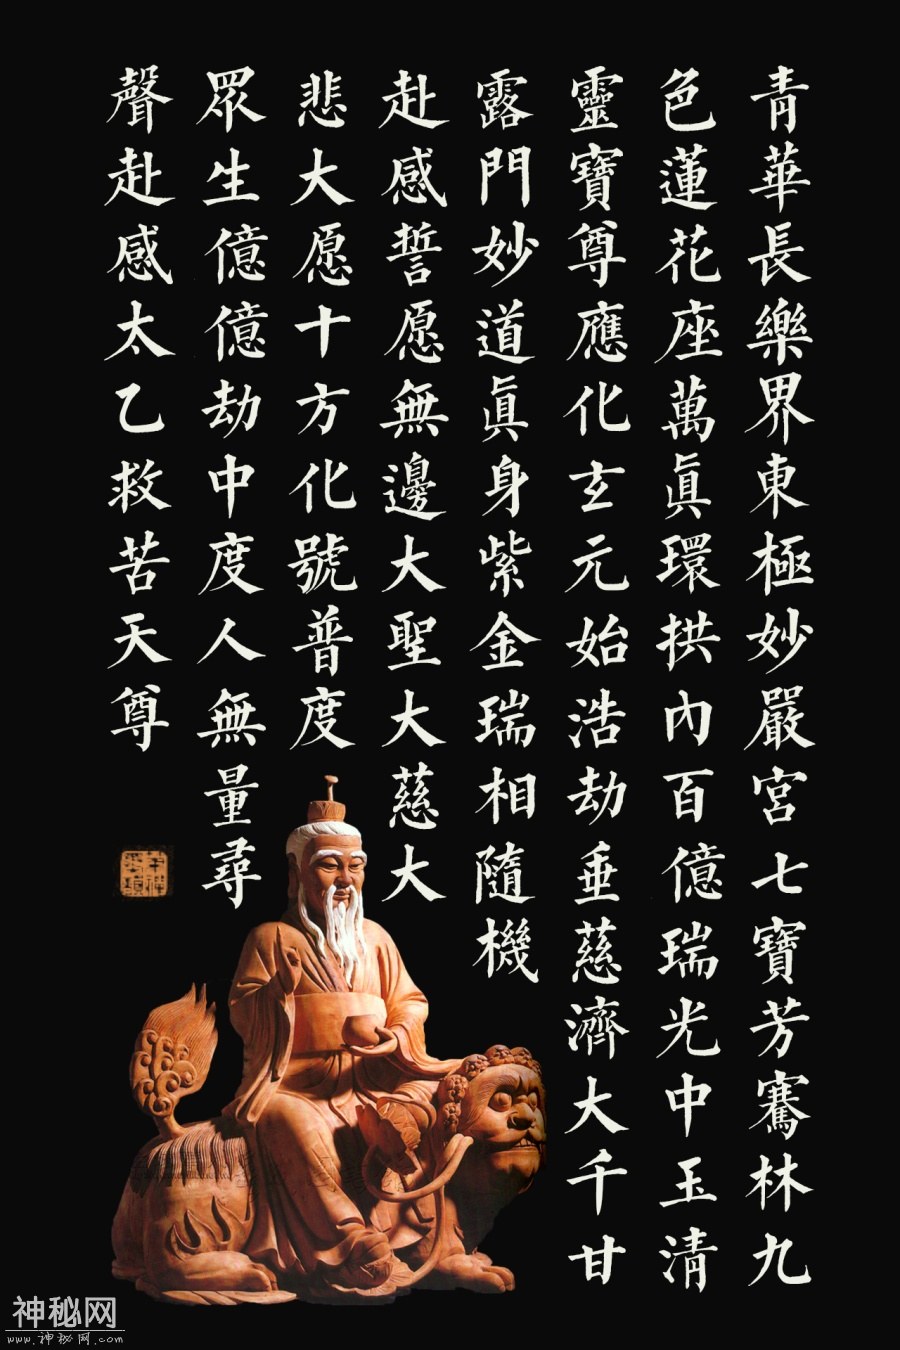 青華長樂界東極妙嚴宮七寶芳騫林九
色蓮花座萬眞環拱內百億瑞光中玉清
靈寶尊應化玄元始浩劫垂慈濟大千甘
露門妙道眞身紫金瑞相隨機
赴感誓愿無邊大聖大慈大
悲大愿十方化號普度
眾生億億劫中度人無量尋
聲赴感太乙救苦天尊
神秘网
www.神秘网.com